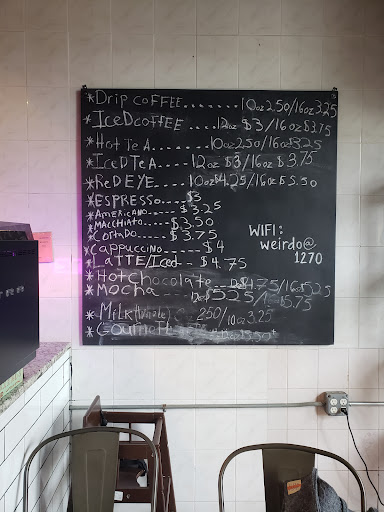 *Drip COFFEE....... 10oz 2.50/16oz 3.25
*IceD COFFEE .... 12oz $3/16oz $3.75
*Hot TeA..... 10oz 2.50/16oz $3.25
*IceD TeA..... 12oz $3/16oz $3.75
*ReD EYE..... 10oz $4.25/16oz $5.50
*ESPRESSO..... $3
*AMERICANO..... $3.25
*MACCHIATO..... $3.50
*CORTADO..... $3.75
*CAPPUCCINO...... $4
*LATTE/Iced... $4.75
WIFI:
weirdo@
1270
*HotChocolate $4.75/16oz 5.25
*Mocha 12oz 5.25/ 5.75
*MiLK (Whole) 2.50/10oz 3.25
*Gourmet